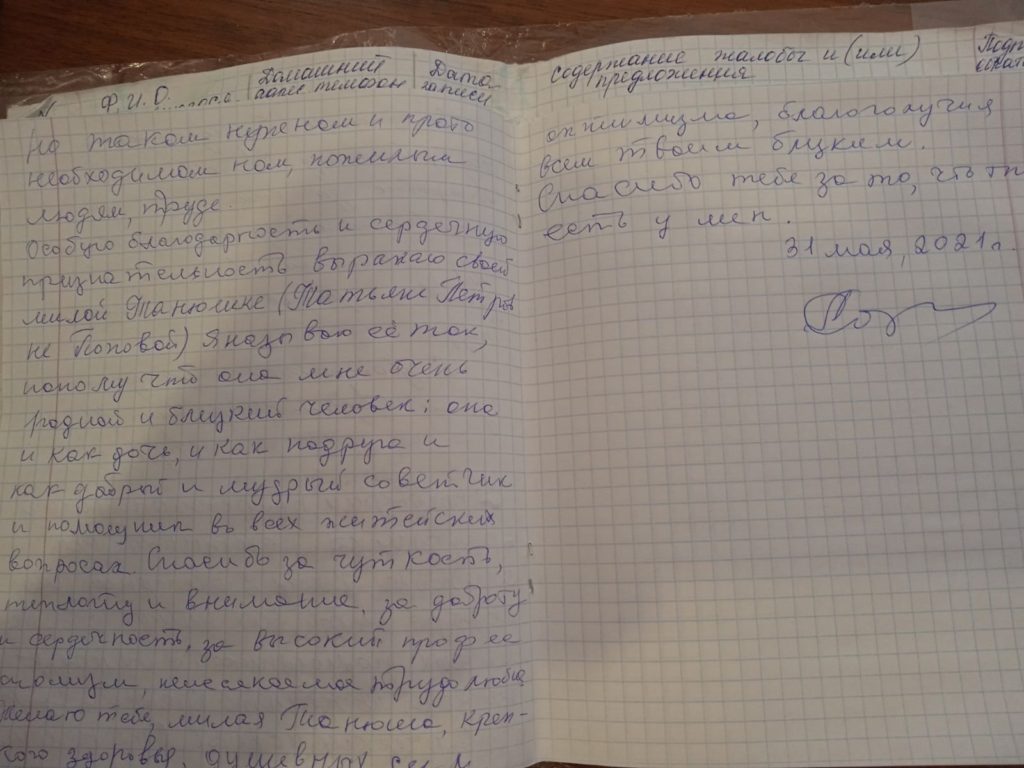 Ф.И.О.
Домашний
телефон
Дата
записи
содержание жалобы и (или)
предложения
На таком нужном и просто
необходимом нам, пожилым
людям, труде.
Особую благодарность и сердечную
признательность выражаю своей
милой Танюшке (Татьяне Петров
не Поповой) Я называю её так,
потому что она мне очень
родной и близкий человек: она
и как дочь, и как подруга и
как добрый и мудрый советчик
и помощник во всех житейских
вопросах. Спасибо за чуткость,
теплоту и внимание, за доброту
и сердечность, за высокий профес
ализм, неиссякаемое трудолюбие
Желаю тебе, милая Танюша, креп-
кого здоровья, душевных сил
оптимизма, благополучия
всем твоим близким.
Спасибо тебе за то, что ты
есть у мен.
31 мая, 2021 г.